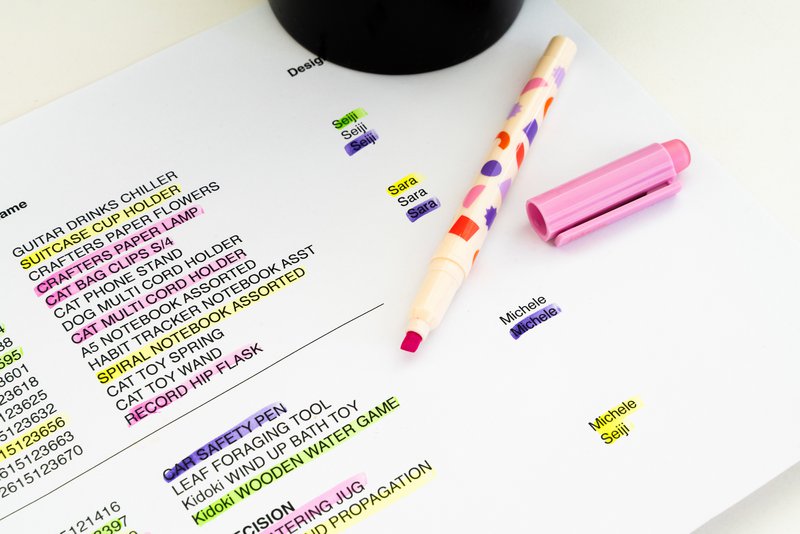 Design
Seiji
Seiji
Seiji
Sara
Sara
Sara
ame
GUITAR DRINKS CHILLER
SUITCASE CUP HOLDER
CRAFTERS PAPER FLOWERS
CRAFTERS PAPER LAMP
CAT BAG CLIPS S/4
CAT PHONE STAND
DOG MULTI CORD HOLDER
CAT MULTI CORD HOLDER
A5 NOTEBOOK ASSORTED
HABIT TRACKER NOTEBOOK ASST
SPIRAL NOTEBOOK ASSORTED
CAT TOY SPRING
CAT TOY WAND
RECORD HIP FLASK
Michele
Michele
4
38
595
3601
23618
123625
5123632
15123656
2615123663
2615123670
CAR SAFETY PEN
LEAF FORAGING TOOL
Kidoki WIND UP BATH TOY
Kidoki WOODEN WATER GAME
Michele
Seiji
5121416
ECISION
TERING JUG
D PROPAGATION